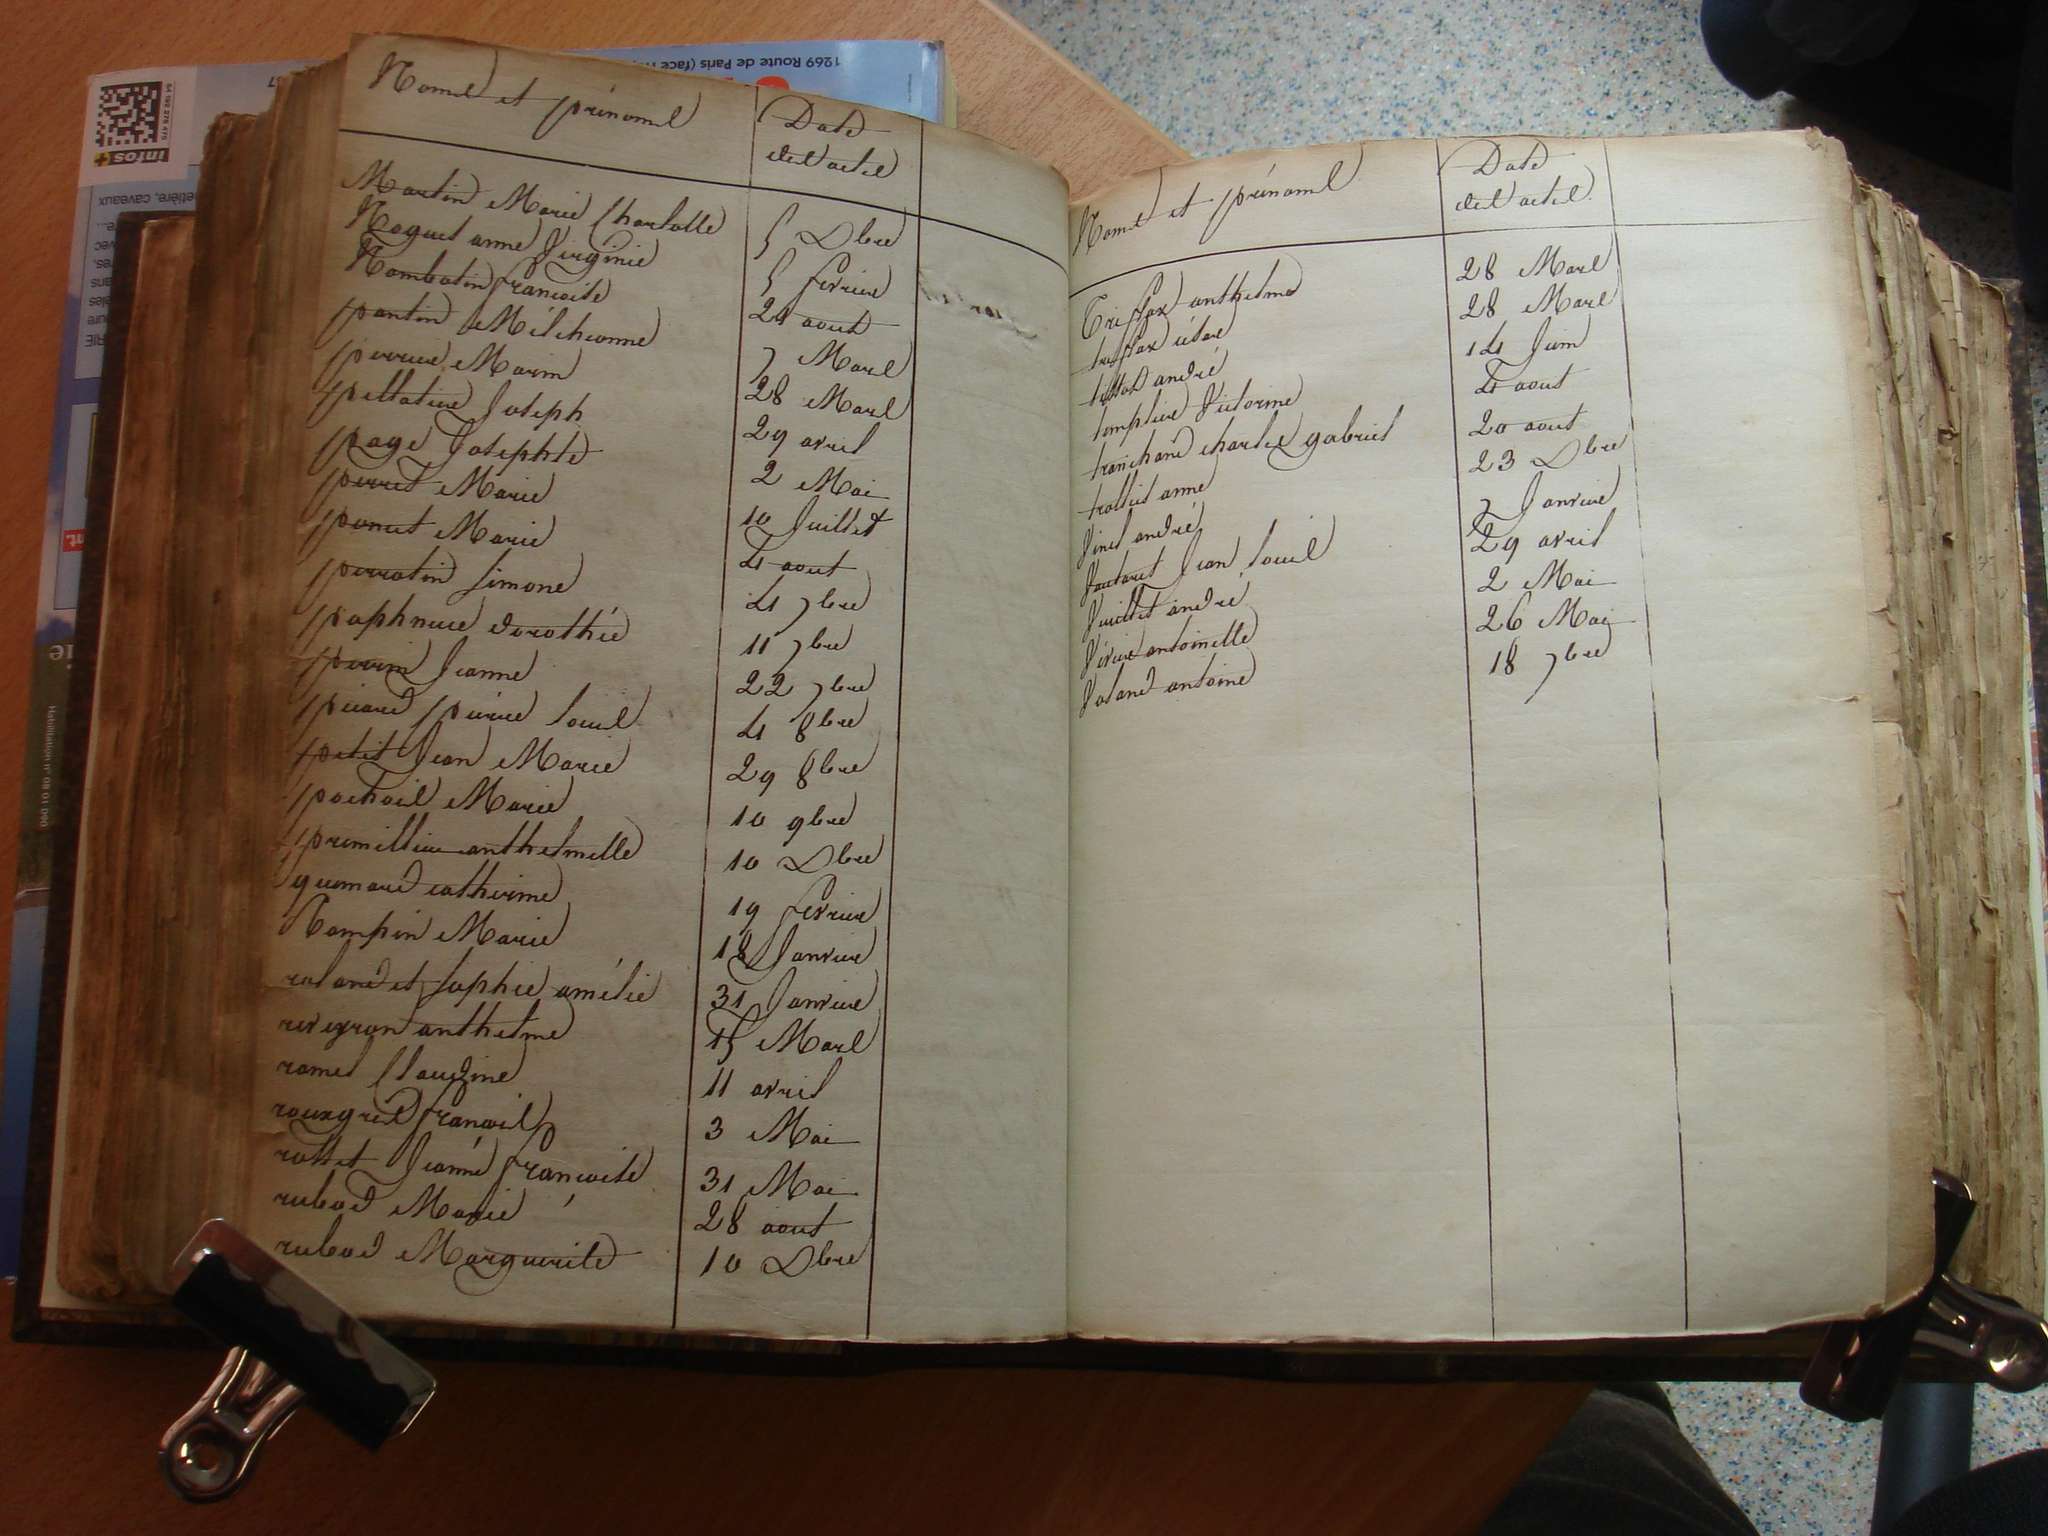 Noms et prénoms
Date
des actes
Martin Marie Charlotte 5 Dbre
Noguet anne Virginie 5 février
Nombotin francoise 21 aout
pantin Melchionne 7 Mars
perrier Marin 28 Mars
pellatier Joseph 29 avril
page Josephte 2 Mai
perret Marie 10 Juillet
ponut Marie 4 aout
perrotin Simone 4 7bre
paphnuce dorothée 11 7bre
perrin Jeanne 22 7bre
picard pierre Louis 4 8bre
petit Jean Marie 29 8bre
pochoil Marie 10 9bre
premillieu anthelmette 10 Dbre
guemard catherine 19 février
Rompin Marie 18 Janvier
roland et sophie amélie 31 Janvier
reveyron anthelme 15 Mars
ramel Claudine 11 avril
rouxgris francois 3 Mai
rosset Jeanne francoise 31 Mai
rubod Marie 28 aout
rubod Marguerite 10 Dbre
Noms et prénoms
Date
des actes
anthelme 28 Mars
28 Mars
tissot andré 14 Juin
templier Victorine 4 aout
tranchand charles gabriel 20 aout
trolliet anne 23 Dbre
Vinel andré 7 Janvier
Vautaret Jean Louis 29 avril
Vuillet andré 2 Mai
antoinette 26 Mai
Voland antoine 18 7bre
1269 Route de Paris (face
infos+